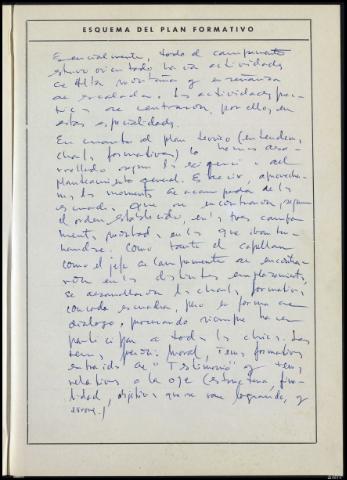 ESQUEMA DEL PLAN FORMATIVO
Esencialmente, todo el campamento
estuvo orientado hacia actividades
de Alta montaña y enseñanza
de escalada. Las actividades
se centraron, por ello, en
estas especialidades.
En cuanto al plan teórico
charlas formativas) lo hemos desa-
rrollado según las exigencias del
planteamiento general. Es decir,
los momentos de acampada de las
escuadras, que se encontraron, según
el orden establecido, en los tres campa-
mentos, en los que iban
Como tanto el capellán
como el jefe de campamento se
en los distintos emplazamientos,
se desarrollaron las charlas formativas
con cada escuadra, pero en forma de
diálogo, procurando siempre hacer
participar a todos los chicos. Los
temas, moral, temas formativos
extraídos de "Testimonio" y temas
relativos a la OJE (estructura, fina-
lidad, objetivos que se van logrando, y